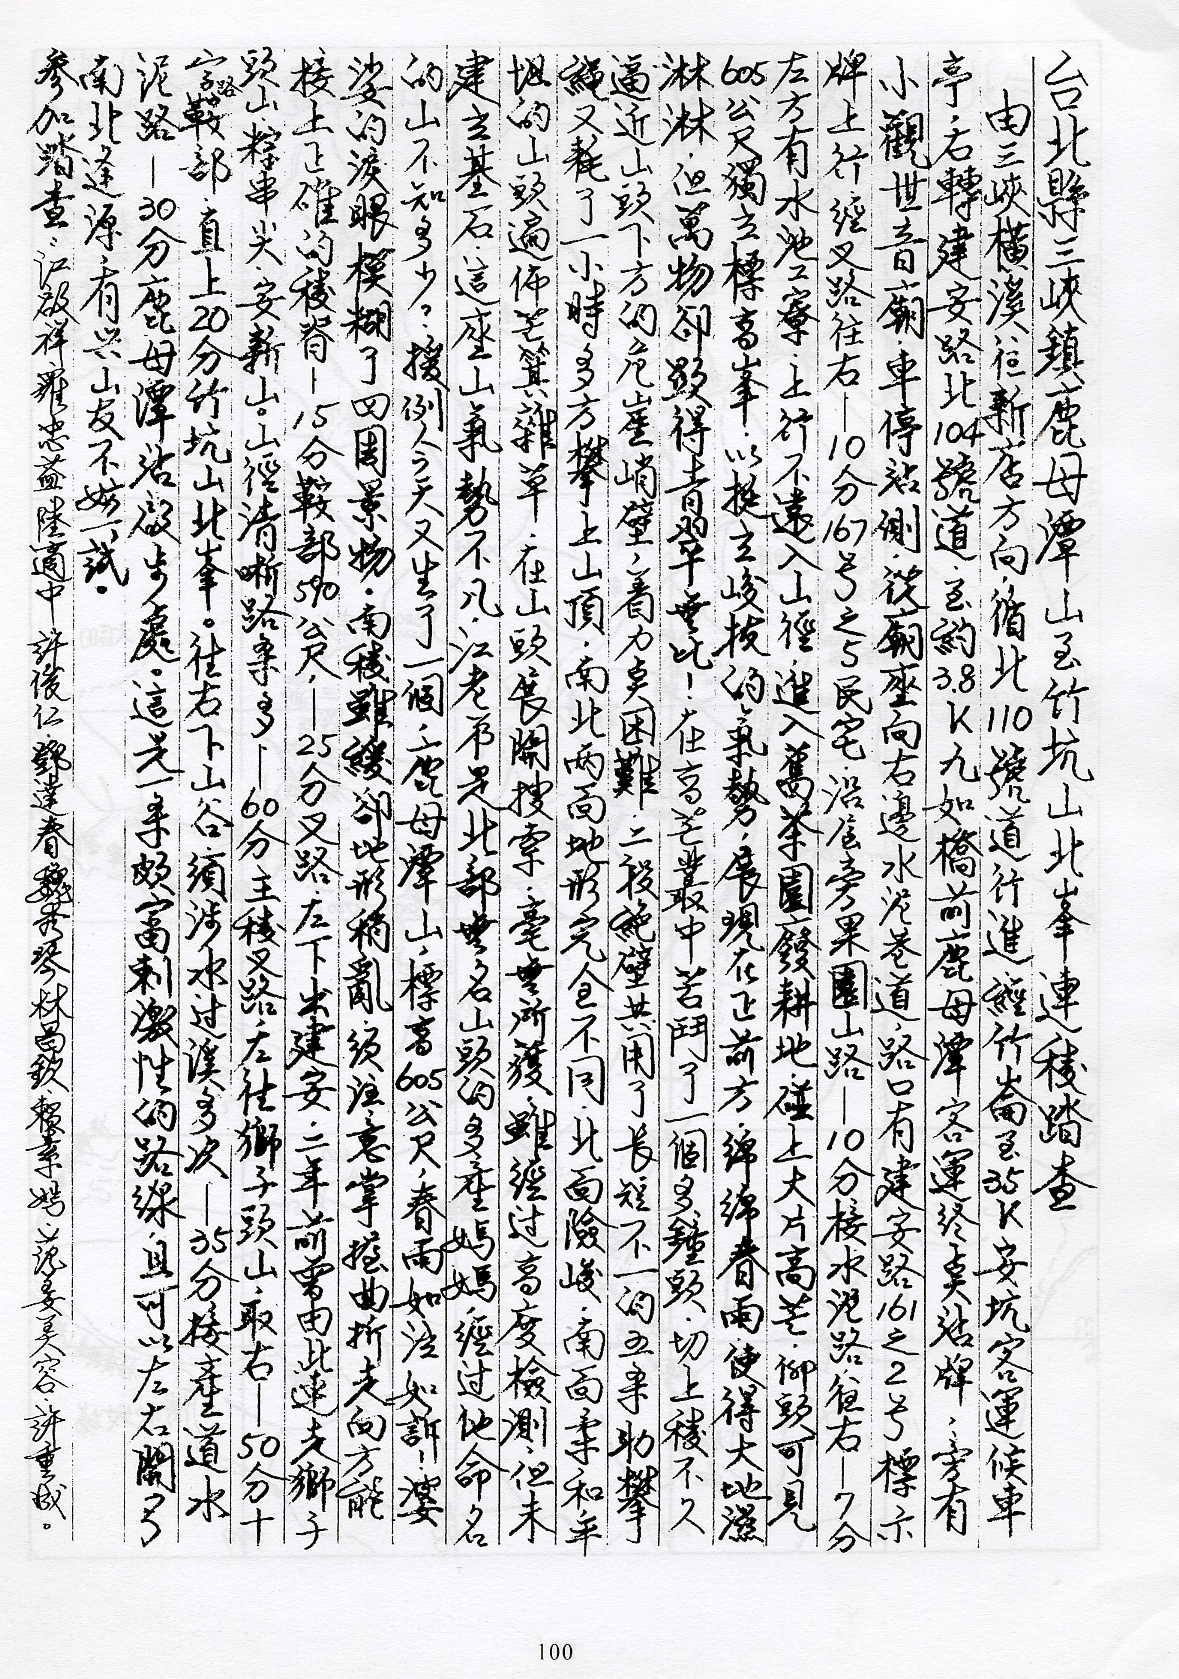 台北縣三峽鎮鹿母潭山至竹坑山北峯連稜踏查
由三峽橫溪往新店方向，循北110號道行進經竹崙至35K安坑客運候車
亭，右轉建安路北104號道，至約3.8K九如橋前鹿母潭客運終奌站牌，旁有
小觀世音廟，車停站側，從廟座向右邊水泥巷道，路口有建安路161之2号標示
牌上行經叉路往右—10分167号之5民宅，沿屋旁果園山路—10分接水泥路往右—7分
左方有水池工寮，上行不遠入山徑，進入舊茶園廢耕地，碰上大片高芒，仰頭可見
605公尺獨立標高峯，以挺立峻拔的氣勢，展現在正前方，綿綿春雨，使得大地濕
淋淋，但萬物卻顯得青翠無比！在高芒叢中苦鬥了一個多鐘頭，切上稜不久
逼近山頭下方的危崖峭壁，着力奌困難，二段絕壁共用了長短不一的五条助攀
繩又耗了一小時多方攀上山頂，南北兩面地形完全不同，北面險峻，南面柔和平
坦的山頭遍佈芒箕雜草，在山頭展開搜索，毫無所獲，雖經过高度檢測，但未
建立基石，這座山氣勢不凡，江老弟是北部無名山頭的多產媽媽，經过他命名
的山不知多少？，援例今天又生了一個，鹿母潭山，標高605公尺，春雨如泣如訴！婆
娑的淚眼模糊了四周景物，南稜雖緩卻地形稍亂，須注意掌握曲折走向方能
接上正確的稜脊—15分鞍部590公尺，—25分叉路，左下出建安，二年前曾由此連走獅子
頭山，粽串尖，安新山。山徑清晰路条多—60分主稜叉路，左往獅子頭山，取右—50分十
字路鞍部，直上20分竹坑山北峯。往右下山谷，須涉水过溪多次—35分接產道水
泥路—30分鹿母潭站啟步處。這是一条頗富刺激性的路線，且可以左右開弓
南北逢源，有兴山友不妨一試。
參加踏查：江啟祥 羅忠益 陸適中 許俊仁 鄧達春 魏秀琴 林昌欽 賴素娉 范姜美容 許重城。
100